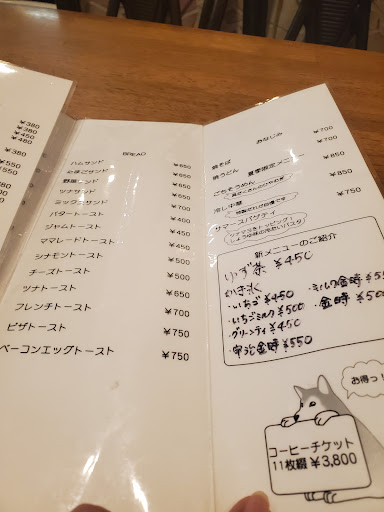 ¥380
¥380
¥480
¥450
¥380
¥550
¥550
BREAD
ハムサンド ¥650
たまごサンド ¥650
野菜サンド ¥650
ツナサンド ¥650
ミックスサンド ¥650
バタートースト ¥400
ジャムトースト ¥450
ママレードトースト ¥450
シナモントースト ¥450
チーズトースト ¥500
ツナトースト ¥650
フレンチトースト ¥700
ピザトースト ¥750
ベーコンエッグトースト ¥750
おなじみ
焼そば ¥700
焼うどん ¥700
夏季限定メニュー
ごちそうめん ¥850
冷し中華 ¥850
サマースパゲティ ¥750
ツナマヨをトッピング!
しょうゆ味の冷たいパスタ
新メニューのご紹介
ゆず茶 ¥450
かき氷
・いちご ¥450
・いちごミルク ¥500
・グリーンティ ¥450
・宇治金時 ¥550
・ミルク金時
・金時 ¥500
お得っ!
コーヒーチケット
11枚綴 ¥3,800